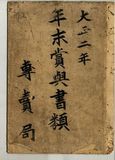 大正二年
年末賞與書類
專賣局